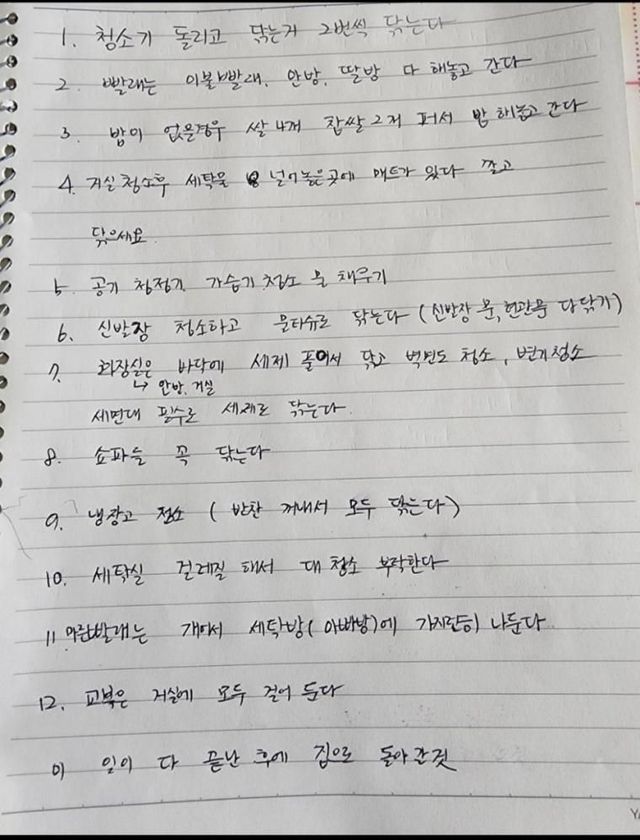 1. 청소기 돌리고 닦는거 2번씩 닦는다
2. 빨래는 이불빨래, 안방, 딸방 다 해놓고 간다
3. 밥이 없을경우 쌀 4개 찹쌀 2개 퍼서 밥 해놓고 간다
4. 거실 청소후 세탁물 널어놓은곳에 매트가 있다 깔고
닦으세요
5. 공기 청정기 가습기 청소 물 채우기
6. 신발장 청소하고 물티슈로 닦는다 (신발장 문, 현관문 다 닦기)
7. 화장실은 바닥에 세제 풀어서 닦고 벽면도 청소, 변기청소
↳ 안방, 거실
세면대 필수로 세제로 닦는다.
8. 쇼파들 꼭 닦는다
9. 냉장고 청소 (반찬 꺼내서 모두 닦는다)
10. 세탁실 걸레질 해서 대 청소 부탁한다
11 마른빨래는 개어서 세탁방(아빠방)에 가지런히 나둔다
12. 교복은 거실에 모두 걸어 둔다
이 일이 다 끝난 후에 집으로 돌아간것